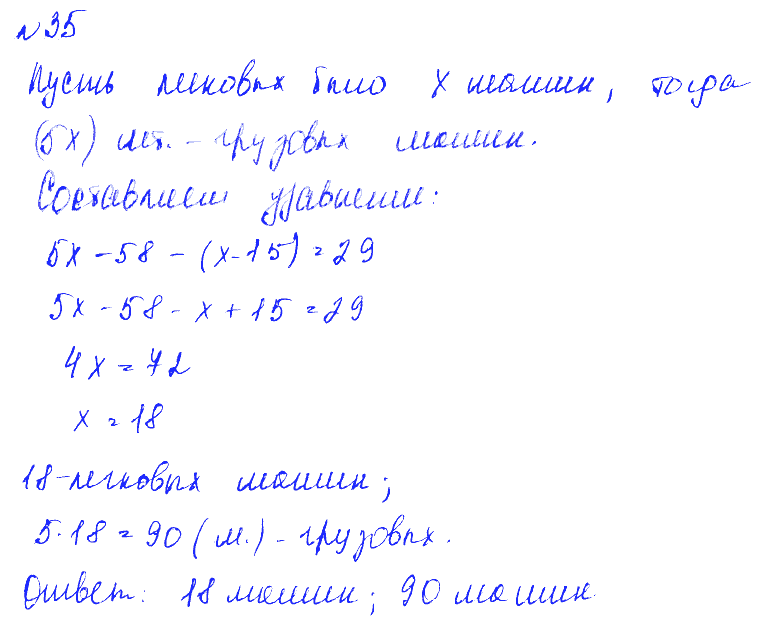 №35
Пусть легковых было x машин, тогда
(5x) шт. - грузовых машин.
Составляем уравнение:
5x - 58 - (x - 15) = 29
5x - 58 - x + 15 = 29
4x = 72
x = 18
18 - легковых машин;
5 · 18 = 90 (м.) - грузовых.
Ответ: 18 машин; 90 машин